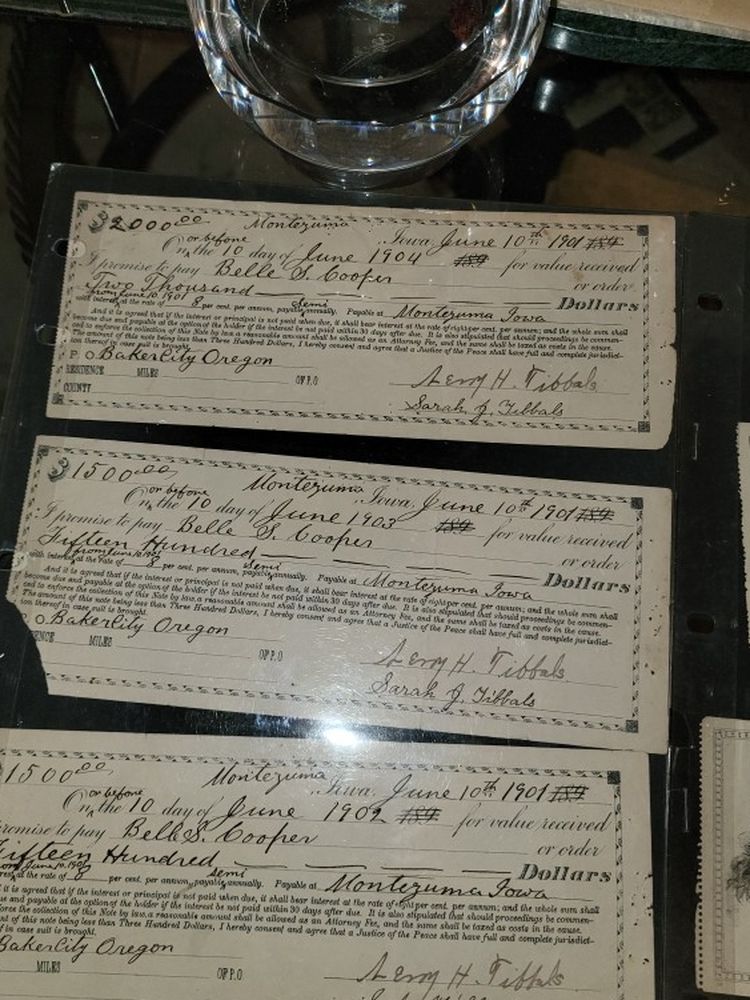 $2000.00 Montezuma, Iowa, June 10th 1901 189
or before
On the 10 day of June 1904 189 for value received
I promise to pay Belle S. Cooper or order
Two Thousand Dollars
from June 10, 1901 Semi
with interest at the rate of 8 per cent. per annum, payable annually. Payable at Montezuma Iowa
And it is agreed that if the interest or principal is not paid when due, it shall bear interest at the rate of eight per cent. per annum; and the whole sum shall
become due and payable at the option of the holder if the interest be not paid within 30 days after due. It is also stipulated that should proceedings be commen-
ced to enforce the collection of this Note by law a reasonable amount shall be allowed as an Attorney Fee, and the same shall be taxed as costs in the cause.
The amount of this note being less than Three Hundred Dollars, I hereby consent and agree that a Justice of the Peace shall have full and complete jurisdict-
ion thereof in case suit is brought.
P O Baker City Oregon
RESIDENCE MILES OF P.O Leroy H. Tibbals
COUNTY Sarah J. Tibbals
$1500.00 Montezuma, Iowa, June 10th 1901 189
or before
On the 10 day of June 1903 189 for value received
I promise to pay Belle S. Cooper or order
Fifteen Hundred Dollars
from June 10, 1901 Semi
with interest at the rate of 8 per cent. per annum, payable annually. Payable at Montezuma Iowa
And it is agreed that if the interest or principal is not paid when due, it shall bear interest at the rate of eight per cent. per annum; and the whole sum shall
become due and payable at the option of the holder if the interest be not paid within 30 days after due. It is also stipulated that should proceedings be commen-
ced to enforce the collection of this Note by law, a reasonable amount shall be allowed as an Attorney Fee, and the same shall be taxed as costs in the cause.
The amount of this note being less than Three Hundred Dollars, I hereby consent and agree that a Justice of the Peace shall have full and complete jurisdict-
ion thereof in case suit is brought.
O Baker City Oregon
ENCE MILES OF P.O Leroy H. Tibbals
Sarah J. Tibbals
1500.00 Montezuma, Iowa, June 10th 1901 189
or before
On the 10 day of June 1902 189 for value received
romise to pay Belle S. Cooper or order
Fifteen Hundred Dollars
from June 10, 1901 semi
rest at the rate of 8 per cent. per annum, payable annually. Payable at Montezuma Iowa
it is agreed that if the interest or principal is not paid when due, it shall bear interest at the rate of eight per cent. per annum; and the whole sum shall
ue and payable at the option of the holder if the interest be not paid within 30 days after due. It is also stipulated that should proceedings be commen-
force the collection of this Note by law, a reasonable amount shall be allowed as an Attorney Fee, and the same shall be taxed as costs in the cause.
nt of this note being less than Three Hundred Dollars, I hereby consent and agree that a Justice of the Peace shall have full and complete jurisdict-
of in case suit is brought.
Baker City Oregon
MILES OF P.O Leroy H. Tibbals